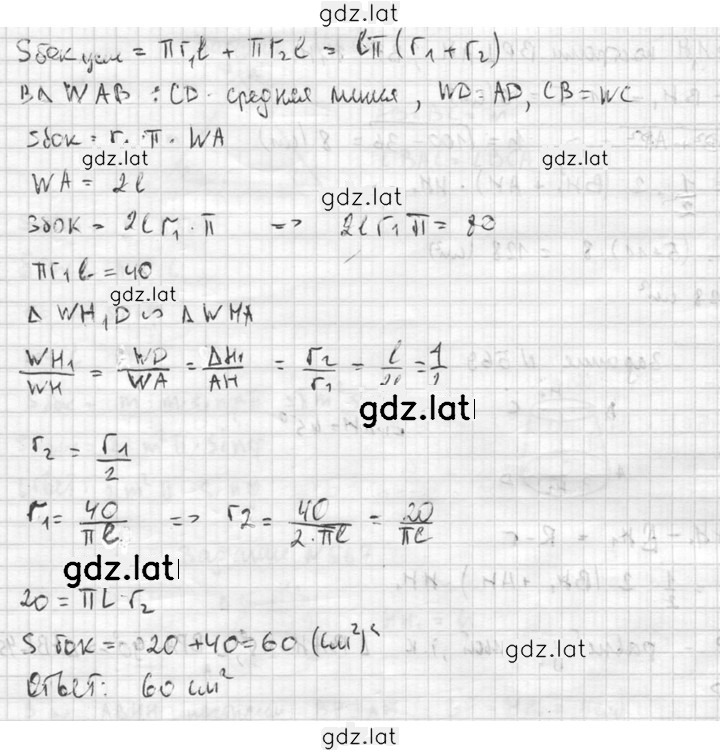 gdz.lat
Sбок.усл = πr₁l + πr₂l = lπ(r₁ + r₂)
В Δ WAB : CD - средняя линия, WD = AD, CB = WC
Sбок = r₁ · π · WA
gdz.lat gdz.lat
WA = 2l
gdz.lat
Sбок = 2lr₁ · π => 2lr₁π = 80
πr₁l = 40
gdz.lat
Δ WH₁D ∽ Δ WHA
WH₁/WH = WD/WA = ΔH₁/AH = r₂/r₁ = l/2l = 1/2
gdz.lat
r₂ = r₁/2
r₁ = 40/πl => r₂ = 40/2·πl = 20/πl
gdz.lat
20 = πL · r₂
Sбок = 20 + 40 = 60 (см²)
gdz.lat
Ответ: 60 см²
gdz.lat